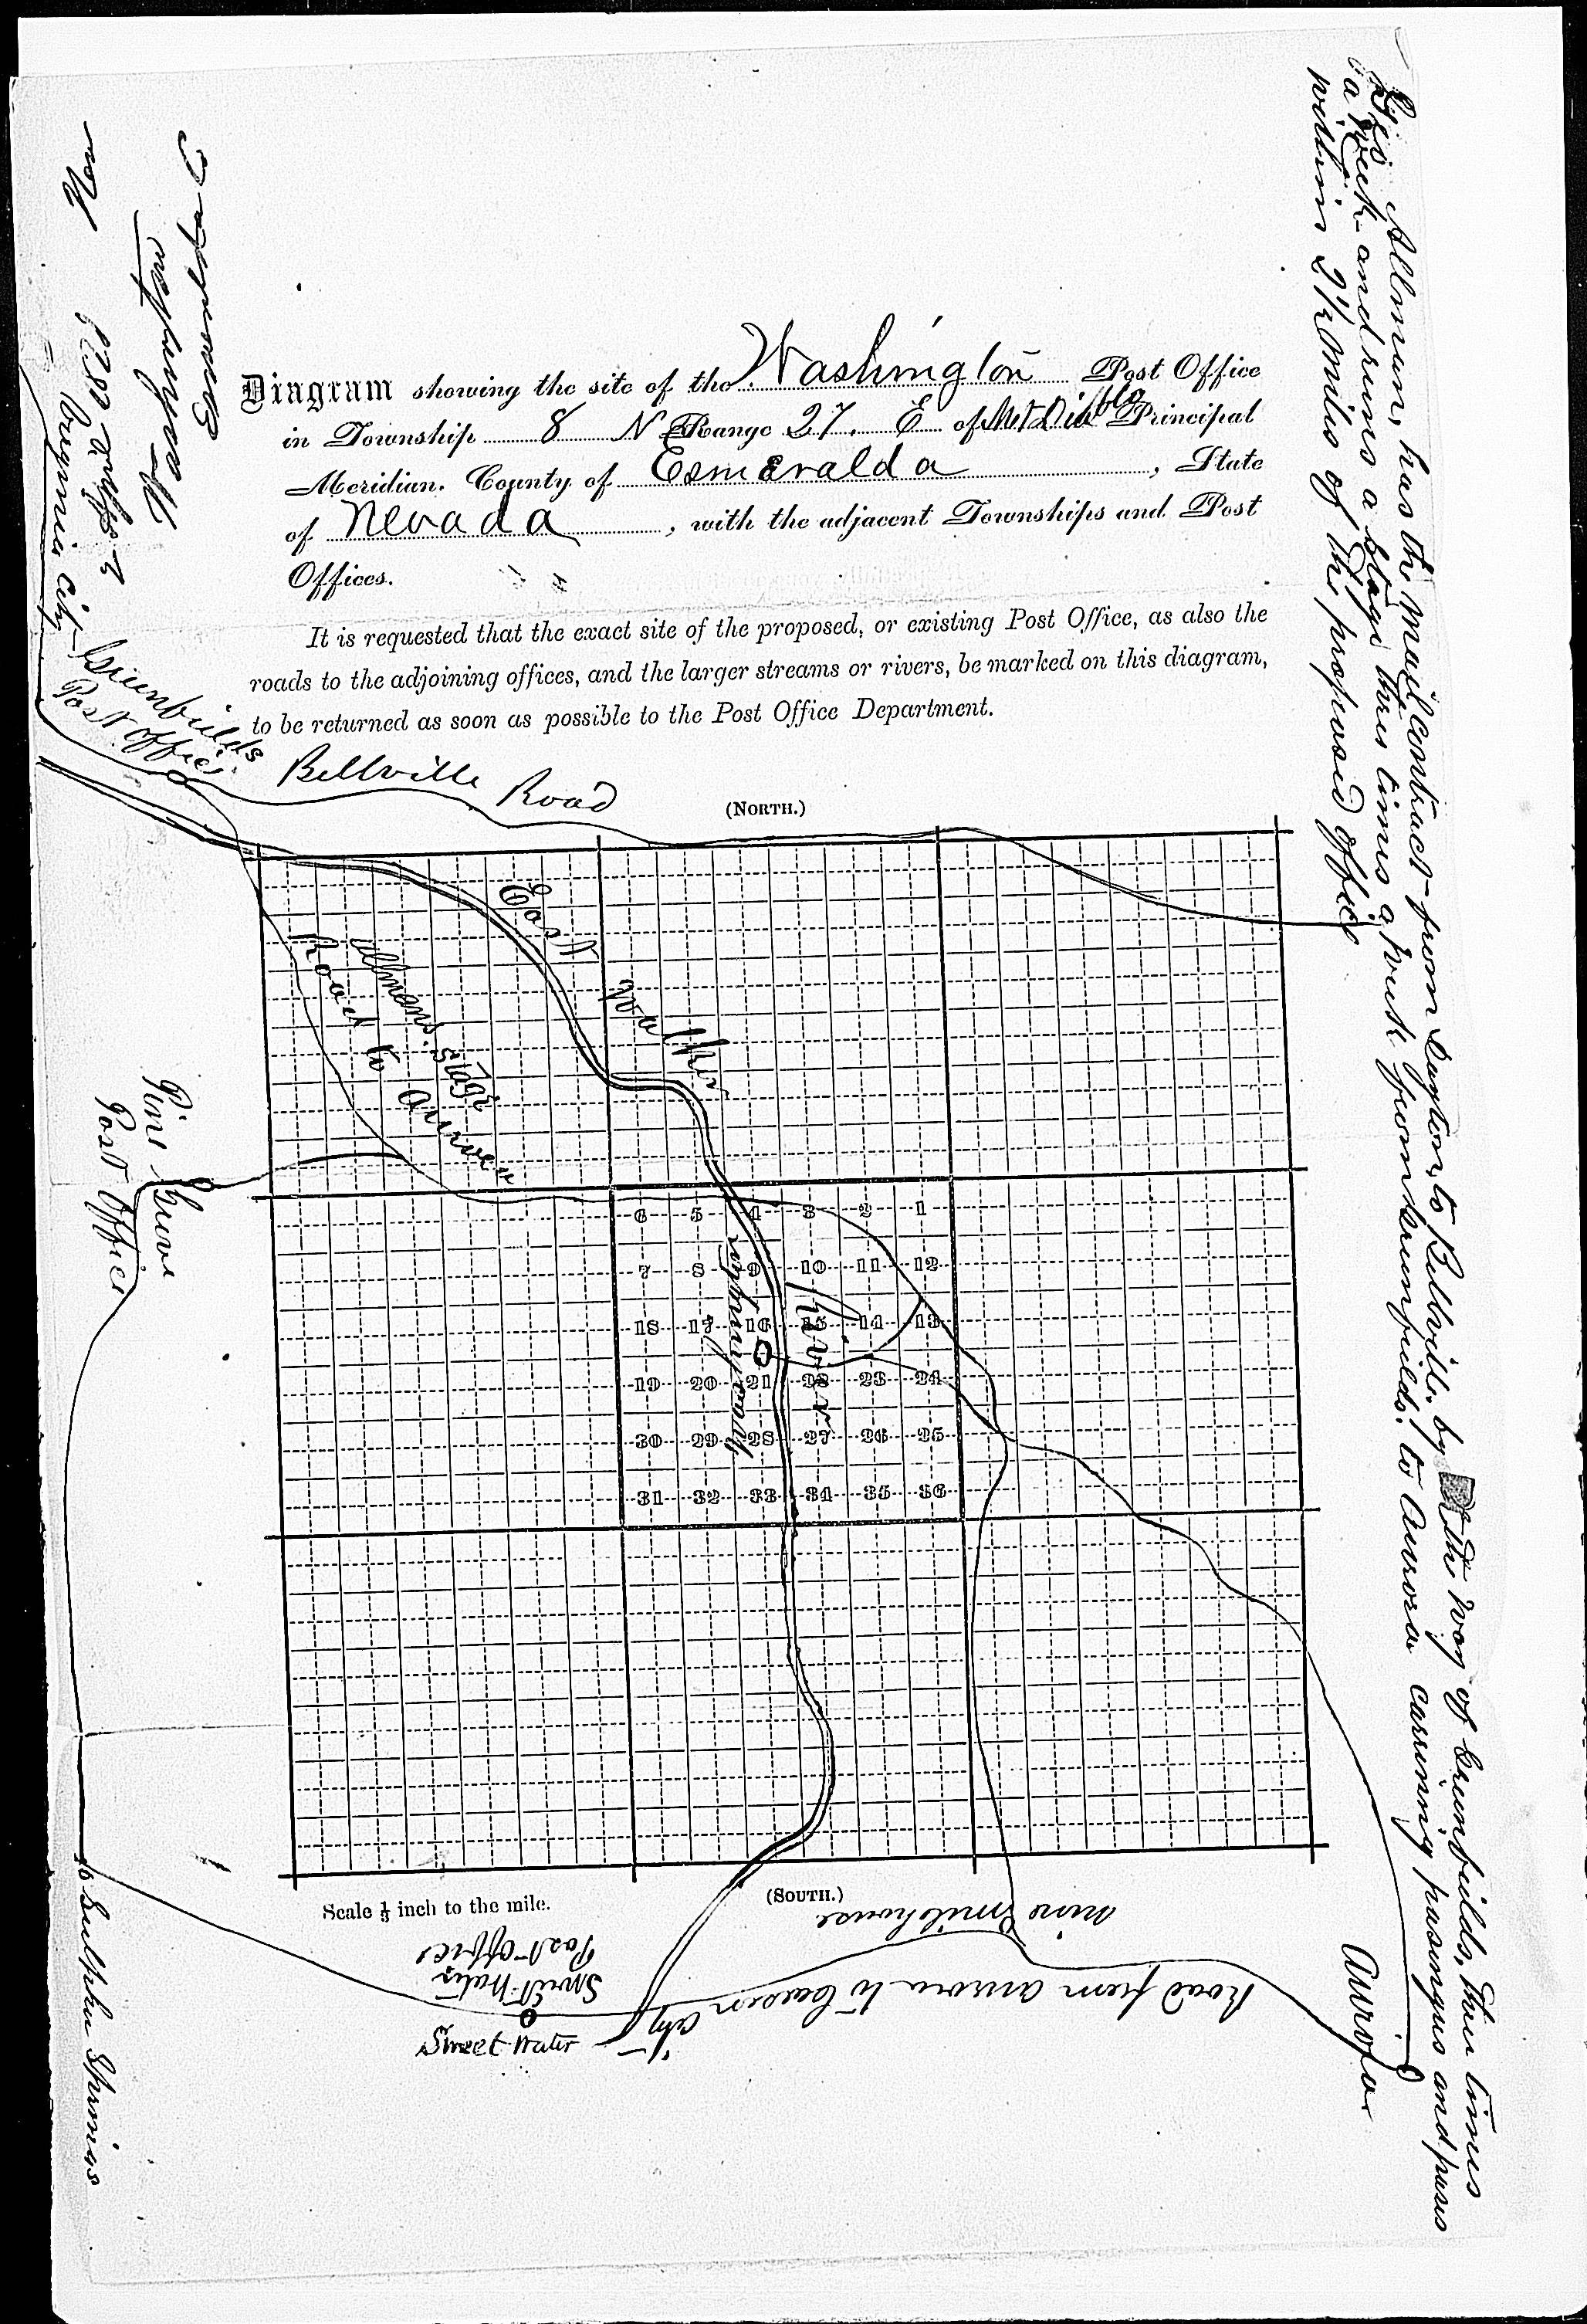 Diagram showing the site of the Washington Post Office
in Township 8 N Range 27. E of Mt Diablo Principal
Meridian. County of Esmeralda, State
of Nevada, with the adjacent Townships and Post
Offices.
It is requested that the exact site of the proposed, or existing Post Office, as also the
roads to the adjoining offices, and the larger streams or rivers, be marked on this diagram,
to be returned as soon as possible to the Post Office Department.
Virginia City
Greenfields
Post Office
Bellville Road
(NORTH.)
East Walker
River
Allman's Stage
Road to Aurora
Pine Grove
Post Office
Washington
6 5 4 3 2 1
7 8 9 10 11 12
18 17 16 15 14 13
19 20 21 22 23 24
30 29 28 27 26 25
31 32 33 34 35 36
Scale ⅓ inch to the mile.
(SOUTH.)
nine mile house
Sweet Water
Post Office
Sweet Water
Road from aurora to Carson City
Aurora
to Sulphur Springs
Allman, has the Mail contract from Dayton, to Bellville, by the way of Greenfields, three times
a week and runs a Stage three times a week from Greenfields, to Aurora carrying passengers and passes
within 2½ miles of the proposed office